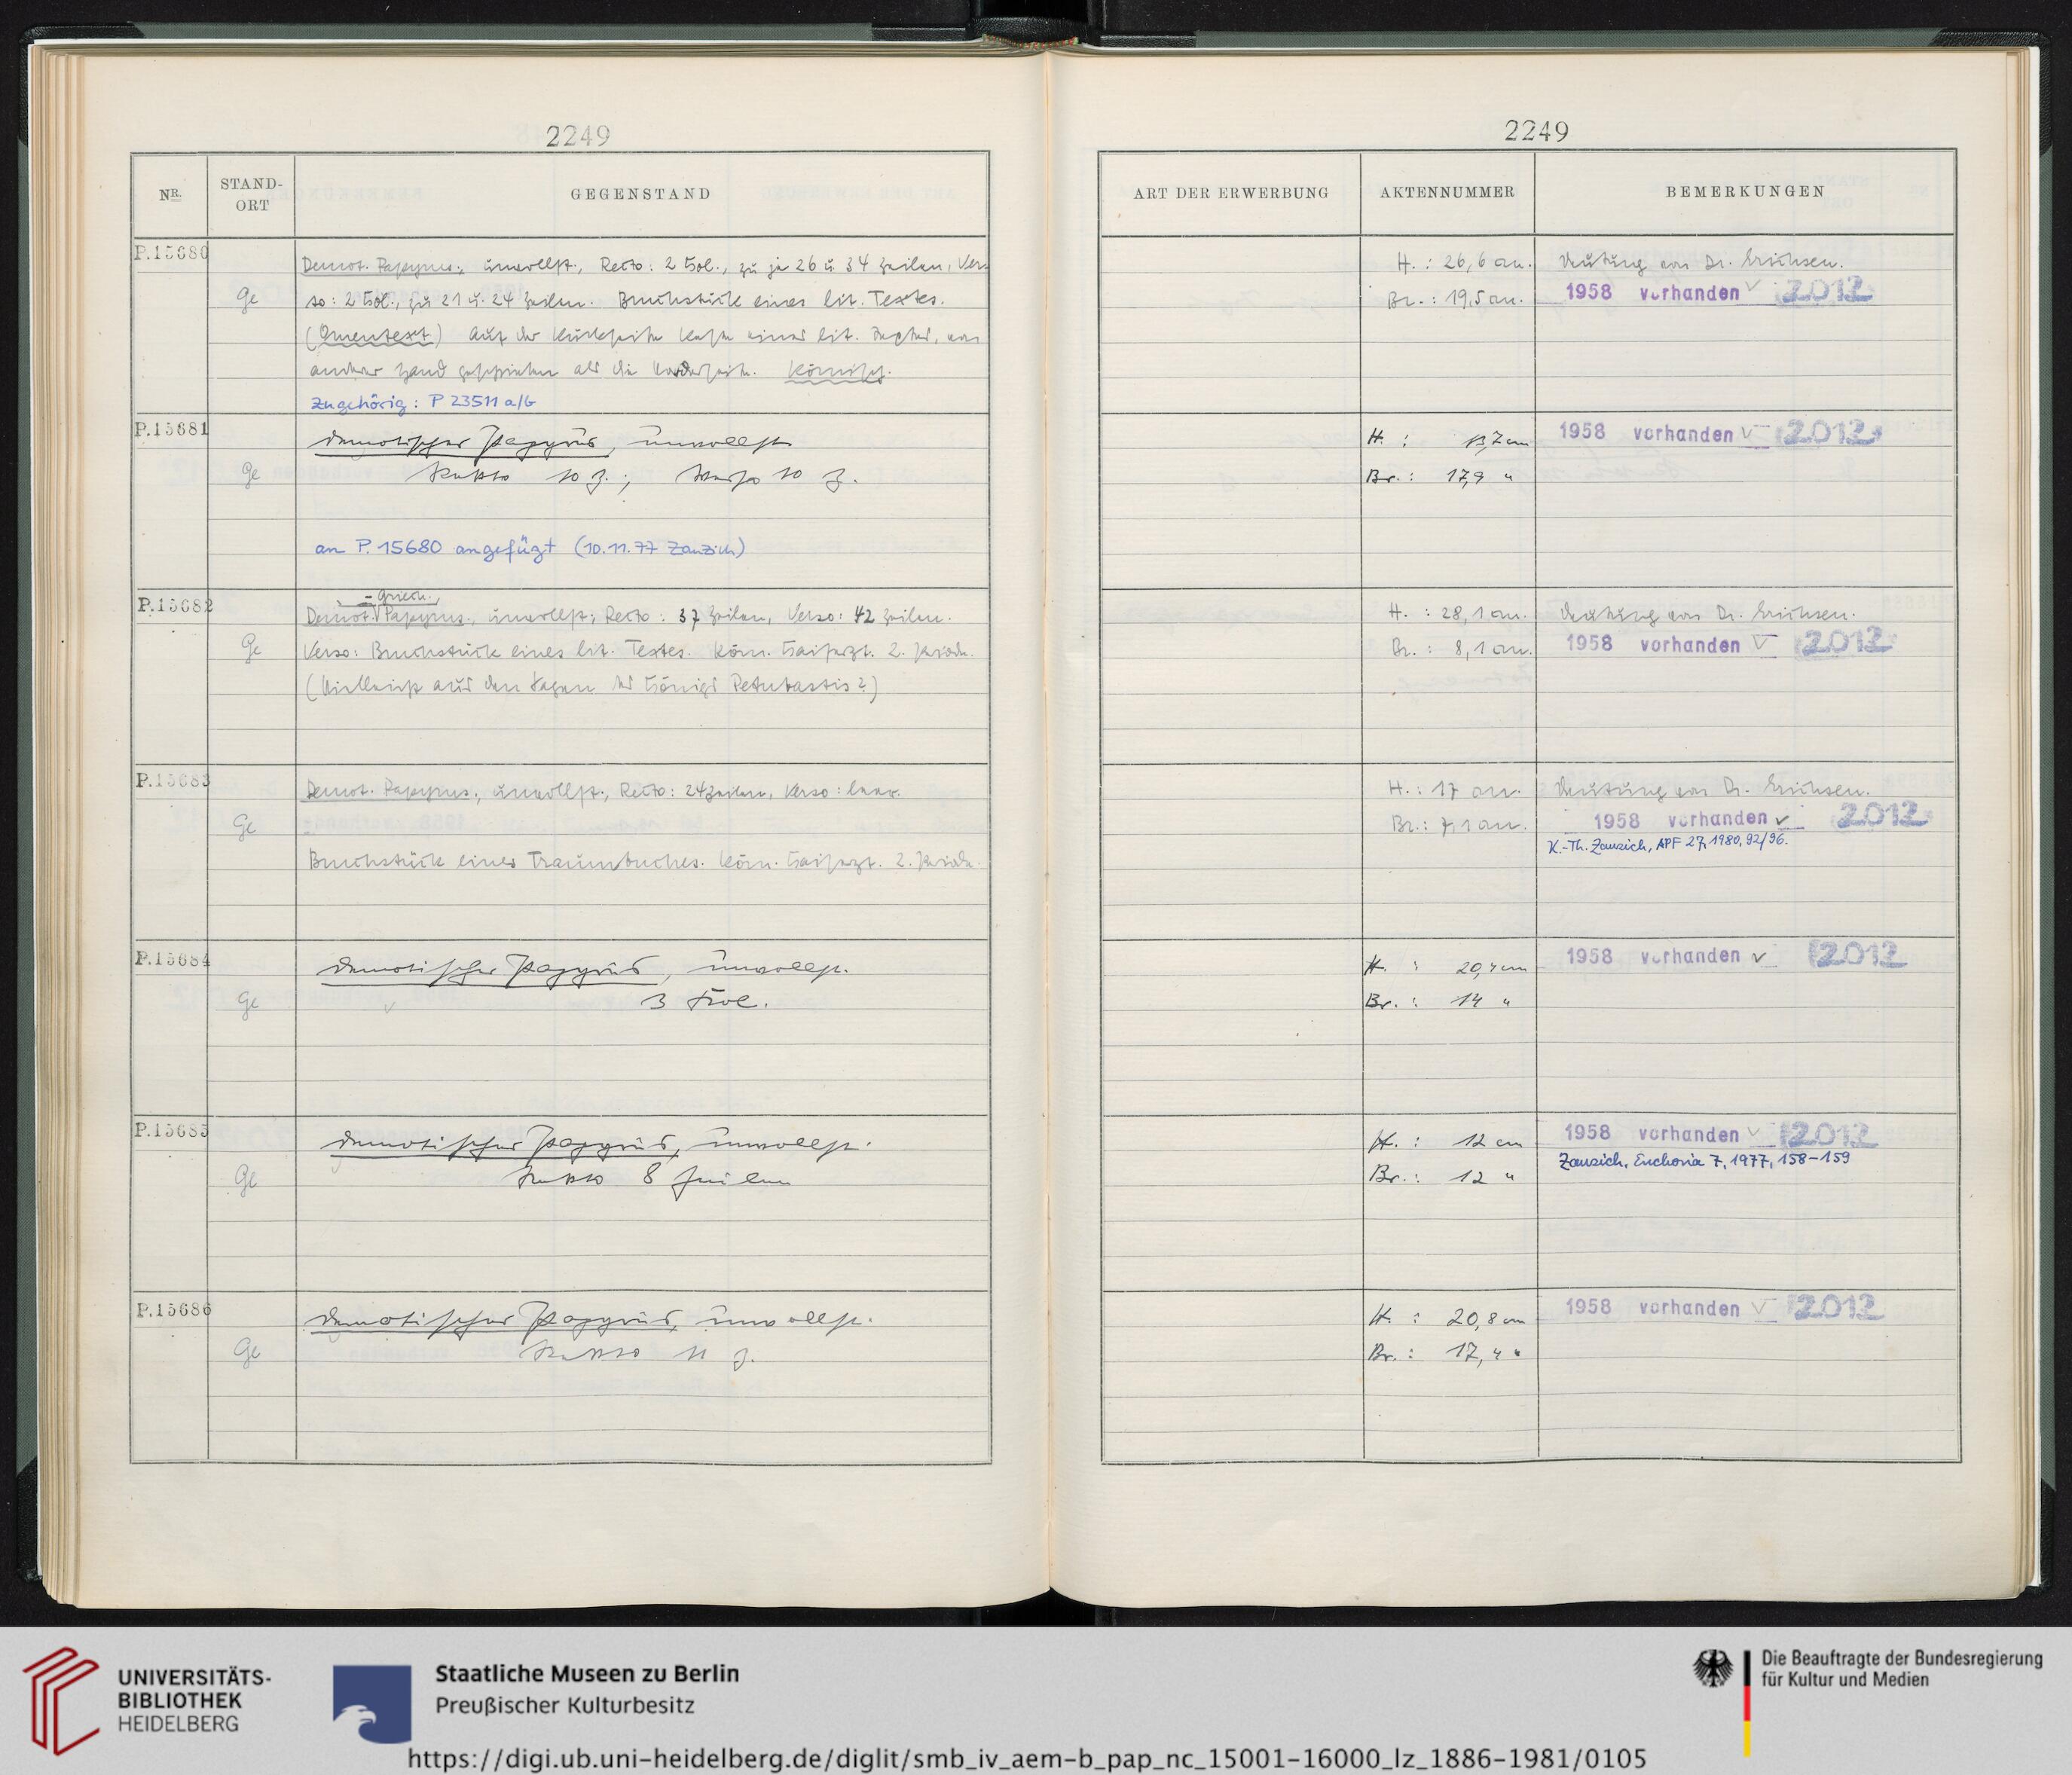 2249
NR.
STAND-
ORT
GEGENSTAND
P.15680
Ge
Demot. Papyrus., unvollst., Recto: 2 Kol., zu je 26 u. 34 Zeilen, Ver-
so: 2 Kol., zu 21 u. 24 Zeilen. Bruchstück eines lit. Textes.
(Omentext) Auf der Rückseite Reste eines lit. Textes, von
anderer Hand geschrieben als die Vorderseite. Römisch.
Zugehörig: P 23511 a/b
P.15681
Ge
demotischer Papyrus, unvollst.
Rekto 10 Z.; Verso 10 Z.
an P. 15680 angefügt (10.11.77 Zauzich)
P.15682
Ge
- griech.,
Demot. Papyrus., unvollst; Recto: 37 Zeilen, Verso: 42 Zeilen.
Verso: Bruchstück eines lit. Textes. Röm. Kaiserzt. 2. Periode.
(Vielleicht aus den Sagen des Königs Petubastis?)
P.15683
Ge
Demot. Papyrus., unvollst., Recto: 24 Zeilen, Verso: leer.
Bruchstück eines Traumbuches. Röm. Kaiserzt. 2. Periode.
P.15684
Ge
demotischer Papyrus, unvollst.
3 Kol.
P.15685
Ge
demotischer Papyrus, unvollst.
Rekto 8 Zeilen
P.15686
Ge
demotischer Papyrus, unvollst.
Rekto 11 Z.
2249
ART DER ERWERBUNG
AKTENNUMMER
BEMERKUNGEN
H. : 26,6 cm. Deutung von Dr. Erichsen.
Br. : 19,5 cm. 1958 vorhanden 2012
H. : cm 1958 vorhanden 2012
Br. : 17,9 "
H. : 28,1 cm. Deutung von Dr. Erichsen.
Br. : 8,1 cm. 1958 vorhanden 2012
H. : 17 cm. Deutung von Dr. Erichsen.
Br. : 7,1 cm. 1958 vorhanden 2012
K.-Th. Zauzich, APF 27, 1980, 92/96.
H. : 20,4 cm 1958 vorhanden 2012
Br. : 14 "
H. : 12 cm 1958 vorhanden 2012
Zauzich, Enchoria 7, 1977, 158-159
Br. : 12 "
H. : 20,8 cm 1958 vorhanden 2012
Br. : 17,4 "
UNIVERSITÄTS-
BIBLIOTHEK
HEIDELBERG
Staatliche Museen zu Berlin
Preußischer Kulturbesitz
Die Beauftragte der Bundesregierung
für Kultur und Medien
https://digi.ub.uni-heidelberg.de/diglit/smb_iv_aem-b_pap_nc_15001-16000_lz_1886-1981/0105